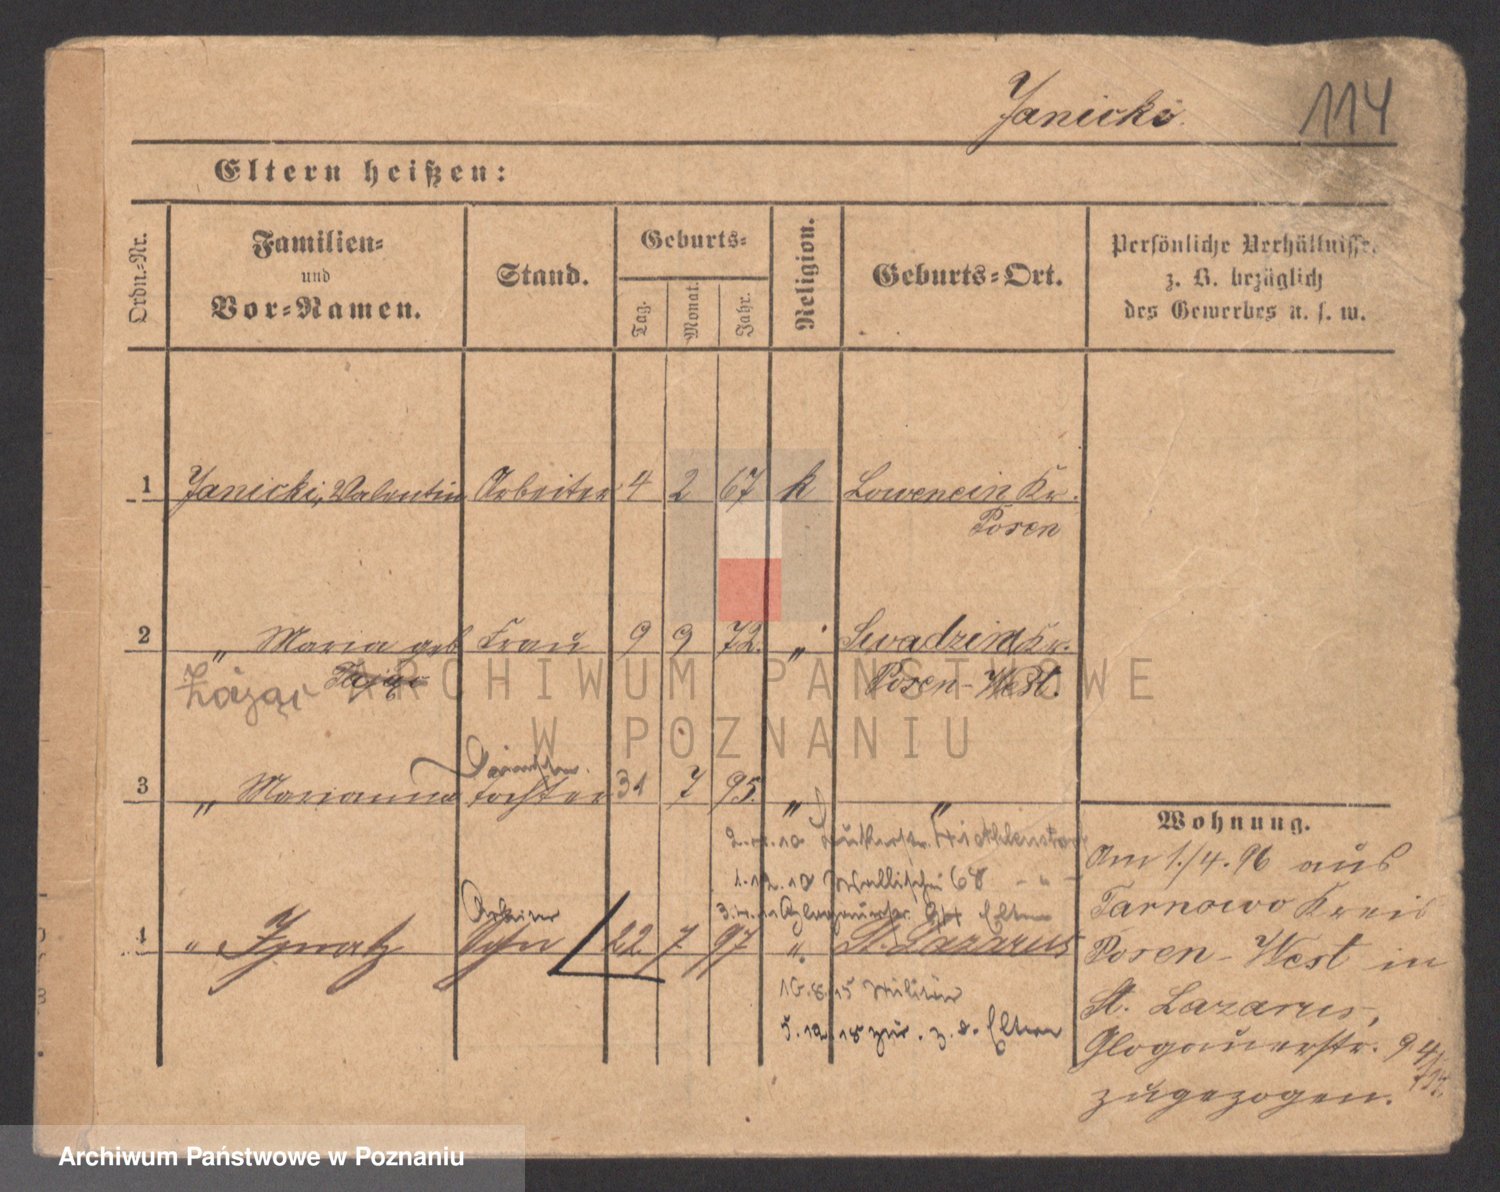 Janicki.
114
Eltern heißen:
Ordn.-Nr.
Familien-
und
Vor-Namen.
Stand.
Geburts-
Tag.
Monat.
Jahr.
Religion.
Geburts-Ort.
Persönliche Verhältnisse,
z. B. bezüglich
des Gewerbes u. s. w.
1 Janicki, Valentin Arbeiter 4 2 67 k Lowencin Kr.
Posen
2 " Maria geb Frau 9 9 72. " Swadzim Kr.
Zając Posen-West.
3 " Marianna Tochter 31 7 95. " "
Wohnung.
Am 1./4. 96 aus
Tarnowo Kreis
Posen-West in
St. Lazarus,
Glogauerstr. 94
zugezogen.
1.12.10 68
Eltern
4 " Ignatz Sohn 22 7 97 " St. Lazarus
16.8.15 Militär
5.12.18 zur. z. d. Eltern
ARCHIWUM PAŃSTWOWE
W POZNANIU
Archiwum Państwowe w Poznaniu